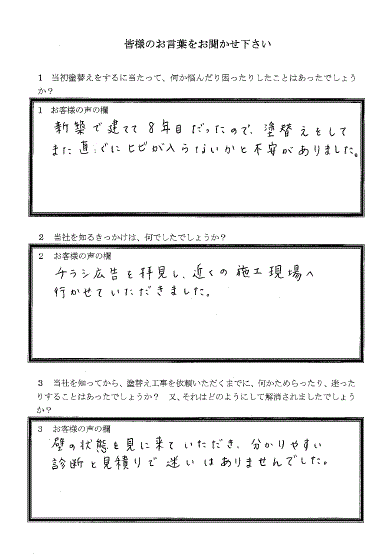 皆様のお言葉をお聞かせ下さい
1 当初塗替えをするに当たって、何か悩んだり困ったりしたことはあったでしょう
か？
1 お客様の声の欄
新築で建てて8年目だったので、塗替えをして
また直ぐにヒビが入らないかと不安がありました。
2 当社を知るきっかけは、何でしたでしょうか？
2 お客様の声の欄
チラシ広告を拝見し、近くの施工現場へ
行かせていただきました。
3 当社を知ってから、塗替え工事を依頼いただくまでに、何かためらったり、迷った
りすることはあったでしょうか？ 又、それはどのようにして解消されましたでしょう
か？
3 お客様の声の欄
壁の状態を見に来ていただき、分かりやすい
診断と見積りで迷いはありませんでした。